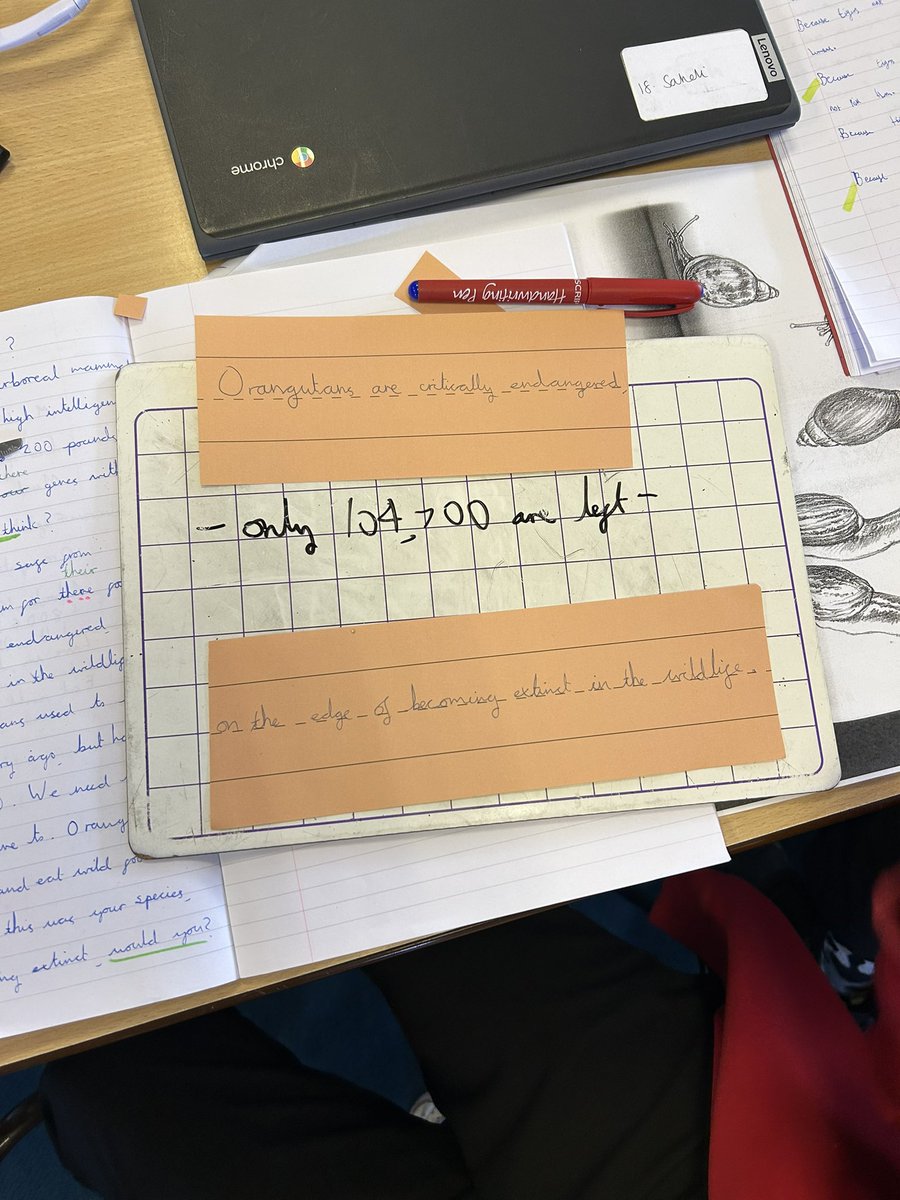 Lenovo
18. Saheli
chrome
SCRI
Handwriting Pen
Orangutans are critically endangered,
- only 104,700 are left -
on the edge of becoming extinct in the wildlife.
?
arboreal mamm
high intelligen
200 pounds
here
our genes with
think?
sage from
their
for there
endangered
in the wildlif
ans used to
ago but ha
We need
ve to. Orang
and eat wild foo
this was your species,
ng extinct would you?
Because
Because
not
Because
Because